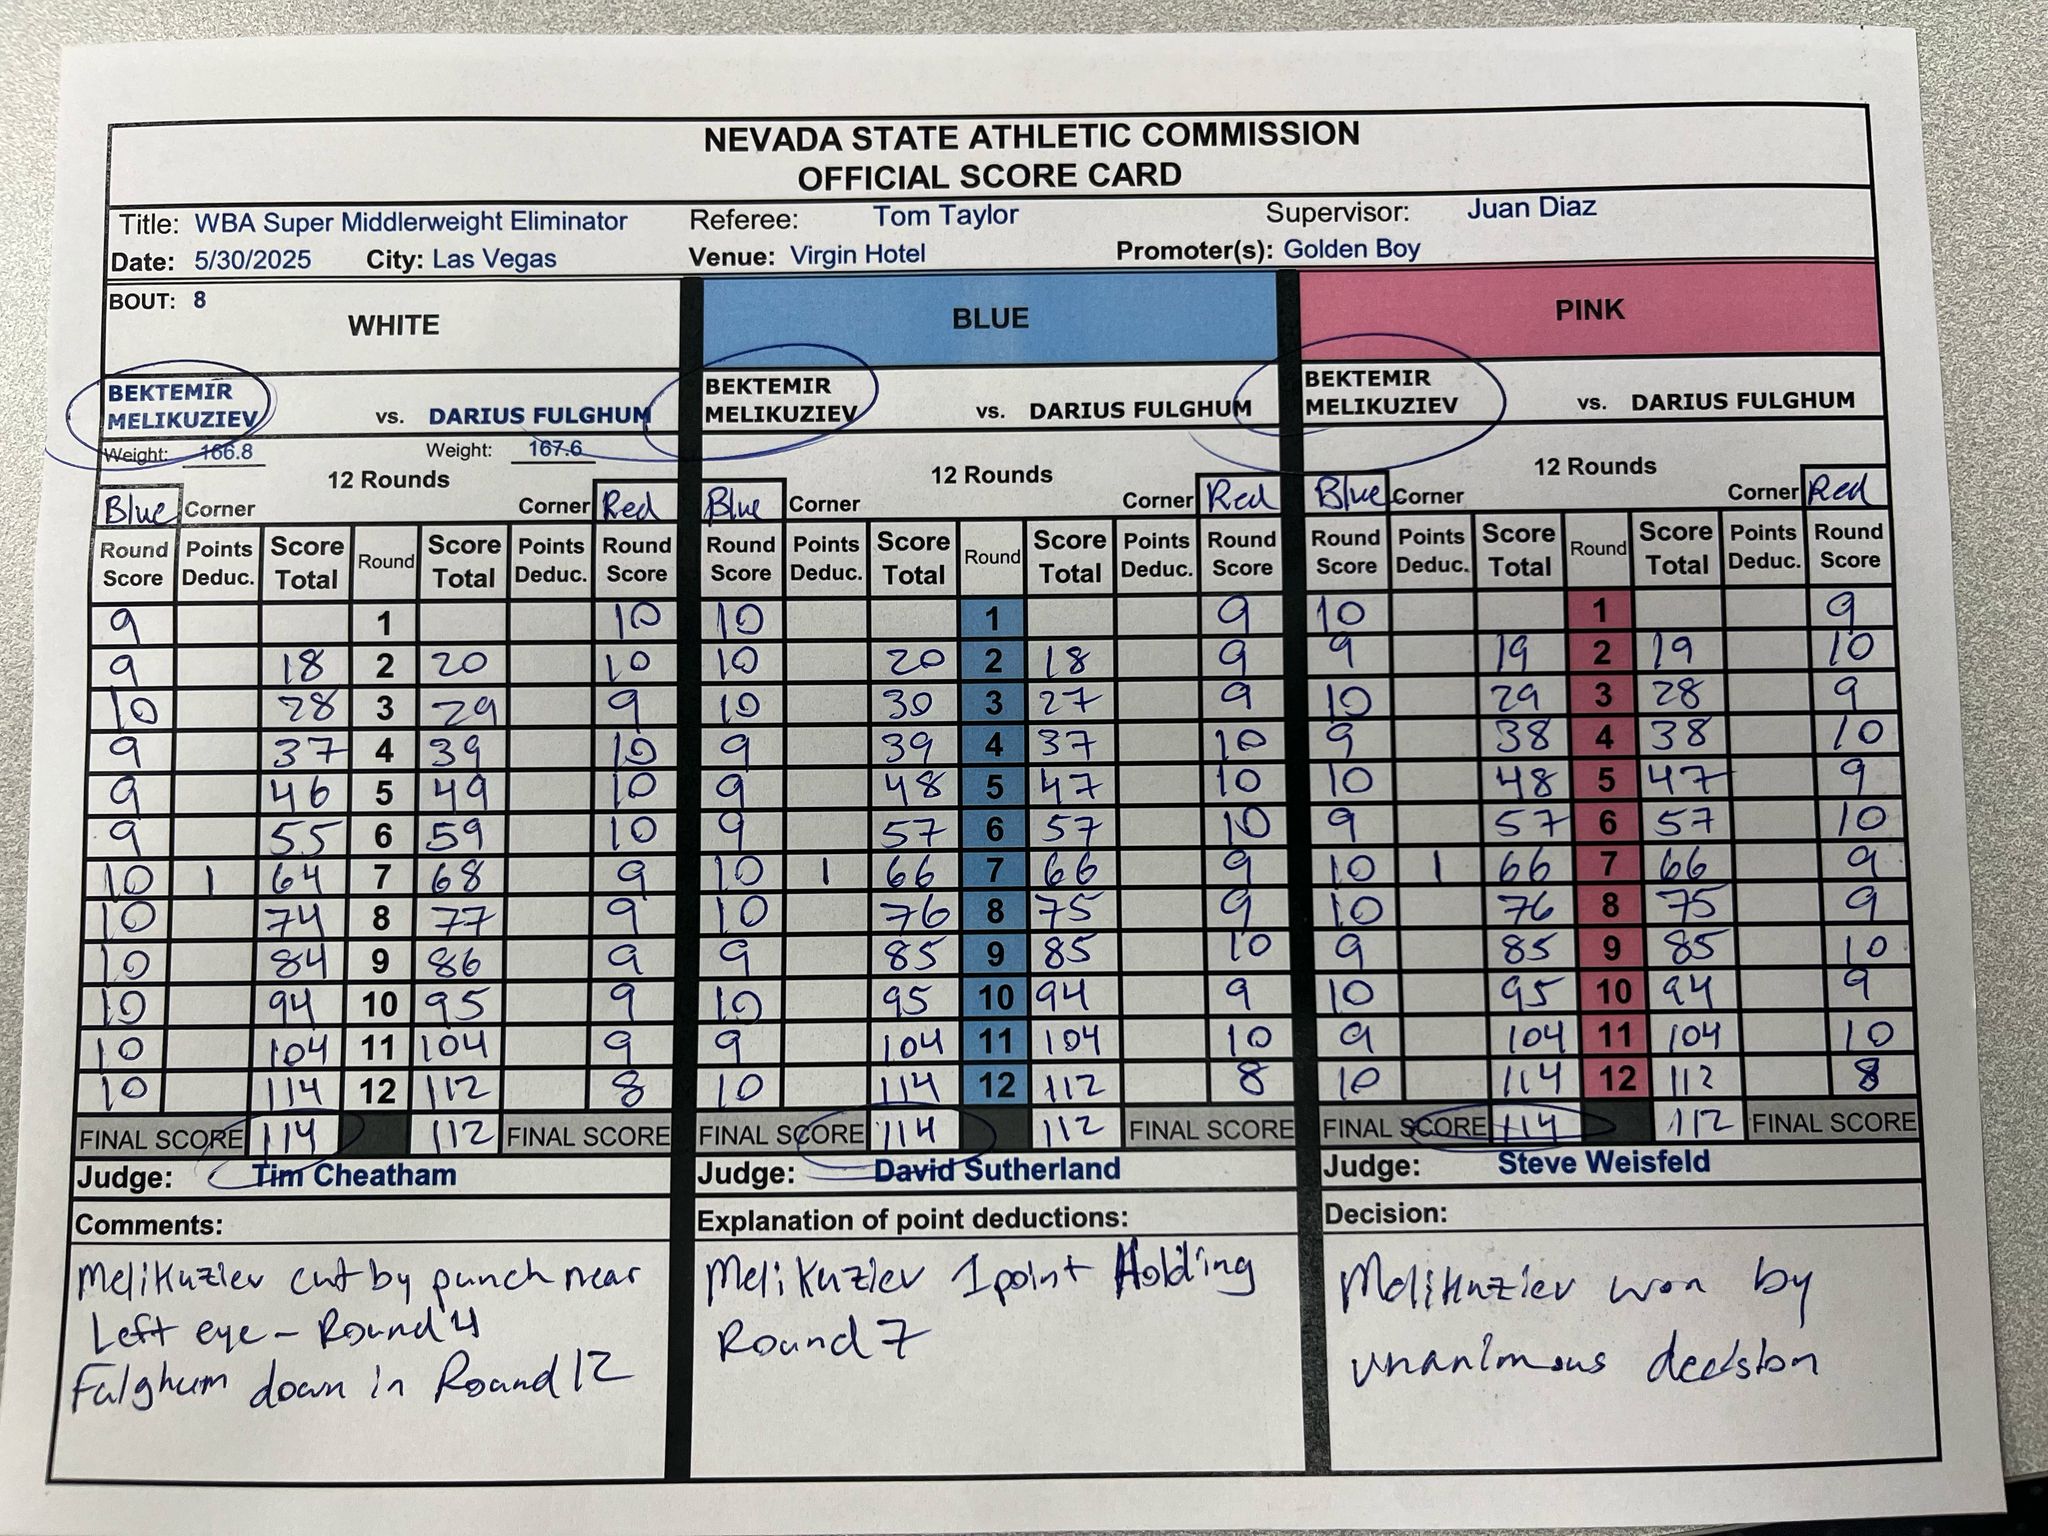 NEVADA STATE ATHLETIC COMMISSION
OFFICIAL SCORE CARD
Title: WBA Super Middlerweight Eliminator Referee: Tom Taylor Supervisor: Juan Diaz
Date: 5/30/2025 City: Las Vegas Venue: Virgin Hotel Promoter(s): Golden Boy
BOUT: 8
WHITE BLUE PINK
BEKTEMIR MELIKUZIEV vs. DARIUS FULGHUM BEKTEMIR MELIKUZIEV vs. DARIUS FULGHUM BEKTEMIR MELIKUZIEV vs. DARIUS FULGHUM
Weight: 166.8 Weight: 167.6
12 Rounds 12 Rounds 12 Rounds
Blue Corner Corner Red Blue Corner Corner Red Blue Corner Corner Red
Round Score Points Deduc. Score Total Round Score Total Points Deduc. Round Score Round Score Points Deduc. Score Total Round Score Total Points Deduc. Round Score Round Score Points Deduc. Score Total Round Score Total Points Deduc. Round Score
9 1 10 10 1 9 10 1 9
9 18 2 20 10 10 20 2 18 9 9 19 2 19 10
10 28 3 29 9 10 30 3 27 9 10 29 3 28 9
9 37 4 39 10 9 39 4 37 10 9 38 4 38 10
9 46 5 49 10 9 48 5 47 10 10 48 5 47 9
9 55 6 59 10 9 57 6 57 10 9 57 6 57 10
10 1 64 7 68 9 10 1 66 7 66 9 10 1 66 7 66 9
10 74 8 77 9 10 76 8 75 9 10 76 8 75 9
10 84 9 86 9 9 85 9 85 10 9 85 9 85 10
10 94 10 95 9 10 95 10 94 9 10 95 10 94 9
10 104 11 104 9 9 104 11 104 10 9 104 11 104 10
10 114 12 112 8 10 114 12 112 8 10 114 12 112 8
FINAL SCORE 114 112 FINAL SCORE FINAL SCORE 114 112 FINAL SCORE FINAL SCORE 114 112 FINAL SCORE
Judge: Tim Cheatham Judge: David Sutherland Judge: Steve Weisfeld
Comments:
Melikuziev cut by punch near
Left eye - Round 4
Fulghum down in Round 12
Explanation of point deductions:
Melikuziev 1 point Holding
Round 7
Decision:
Melikuziev won by
unanimous decision